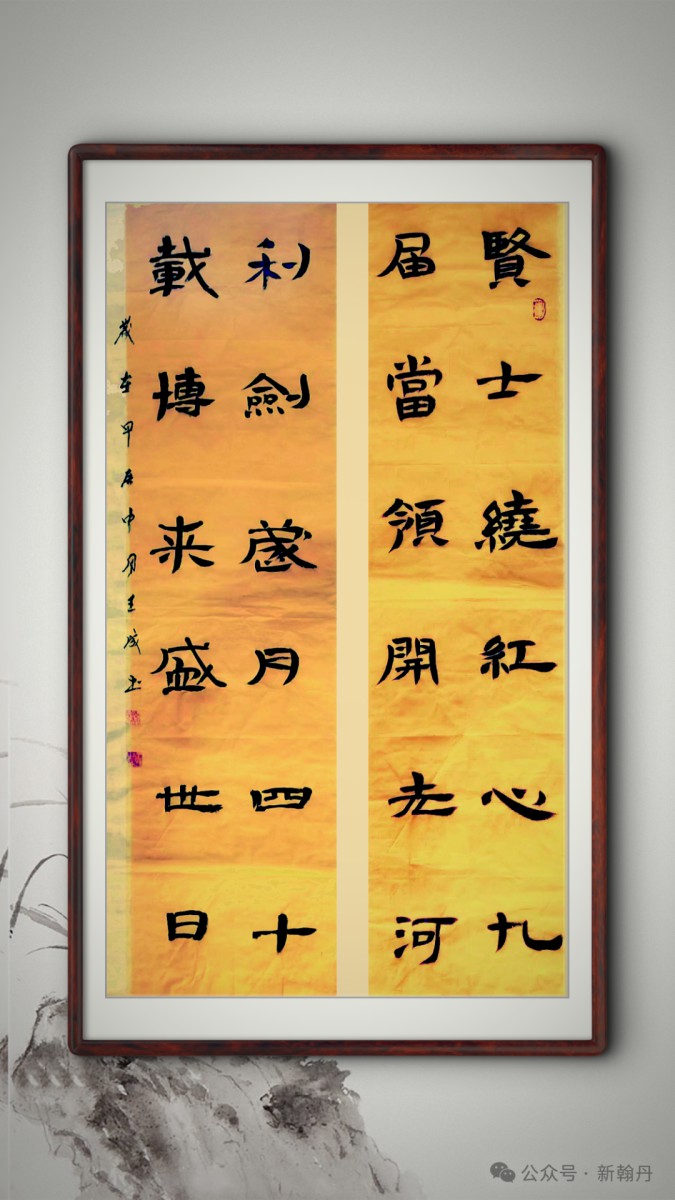 賢士繞紅心九
届當領開河
利劍月四十
載博来盛世日
歲在甲辰中月王成书
公众号 · 新翰丹